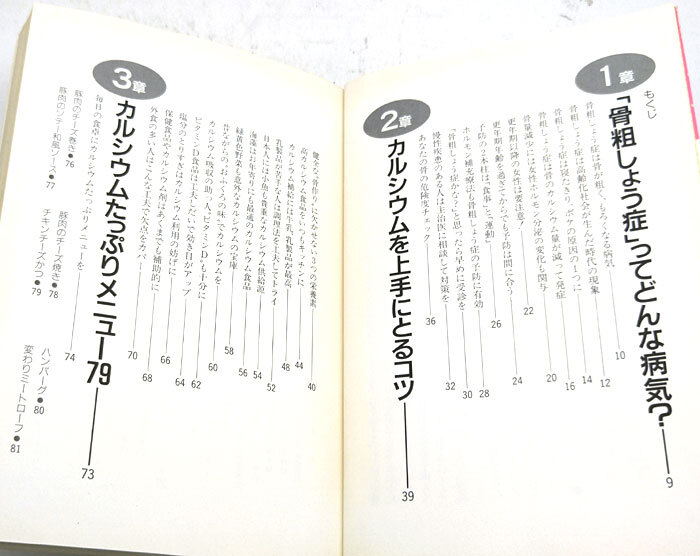 もくじ
1章
「骨粗しょう症」ってどんな病気？ 9
骨粗しょう症は骨が粗く、もろくなる病気 10
骨粗しょう症は高齢化社会が生んだ時代の現象 12
骨粗しょう症は寝たきり、ボケの原因の1つに 14
骨粗しょう症は骨のカルシウム量が減って発症 16
骨量減少には女性ホルモン分泌の変化も関与 20
更年期以降の女性は要注意！ 22
更年期を過ぎてからでも予防は間に合う 24
予防の三本柱は、「食事」と「運動」 26
ホルモン補充療法も骨粗しょう症の予防に有効 28
「骨粗しょう症かな？」と思ったら早めに受診を 30
慢性疾患のある人は主治医に相談して対策を 32
あなたの骨の危険度チェック 36
2章
カルシウムを上手にとるコツ 39
健全な「骨作り」に欠かせない3つの栄養素 40
高カルシウム食品をいつもキッチンに 44
カルシウム補給には牛乳、乳製品が最高 48
乳製品が苦手な人は調理法を工夫してトライ 52
日本人には小魚も貴重なカルシウム供給源 54
海藻はお年寄りにも最適のカルシウム食品 56
緑黄色野菜も意外なカルシウムの宝庫 58
昔ながらの“おふくろの味”でカルシウムを 60
カルシウム吸収の助っ人、ビタミンDも十分に 62
ビタミンD食品は工夫しだいで効き目がアップ 64
塩分のとりすぎはカルシウム利用の妨げに 66
保健食品やカルシウム剤はあくまでも補助的に 68
外食の多い人はこんな工夫で欠点をカバー 70
3章
カルシウムたっぷりメニュー79 73
毎日の食卓にカルシウムたっぷりメニューを 74
豚肉のチーズ巻き●76
豚肉のソテー和風ソース●77
豚肉のチーズ焼き●78
チキンチーズかつ●79
ハンバーグ●80
変わりミートローフ●81